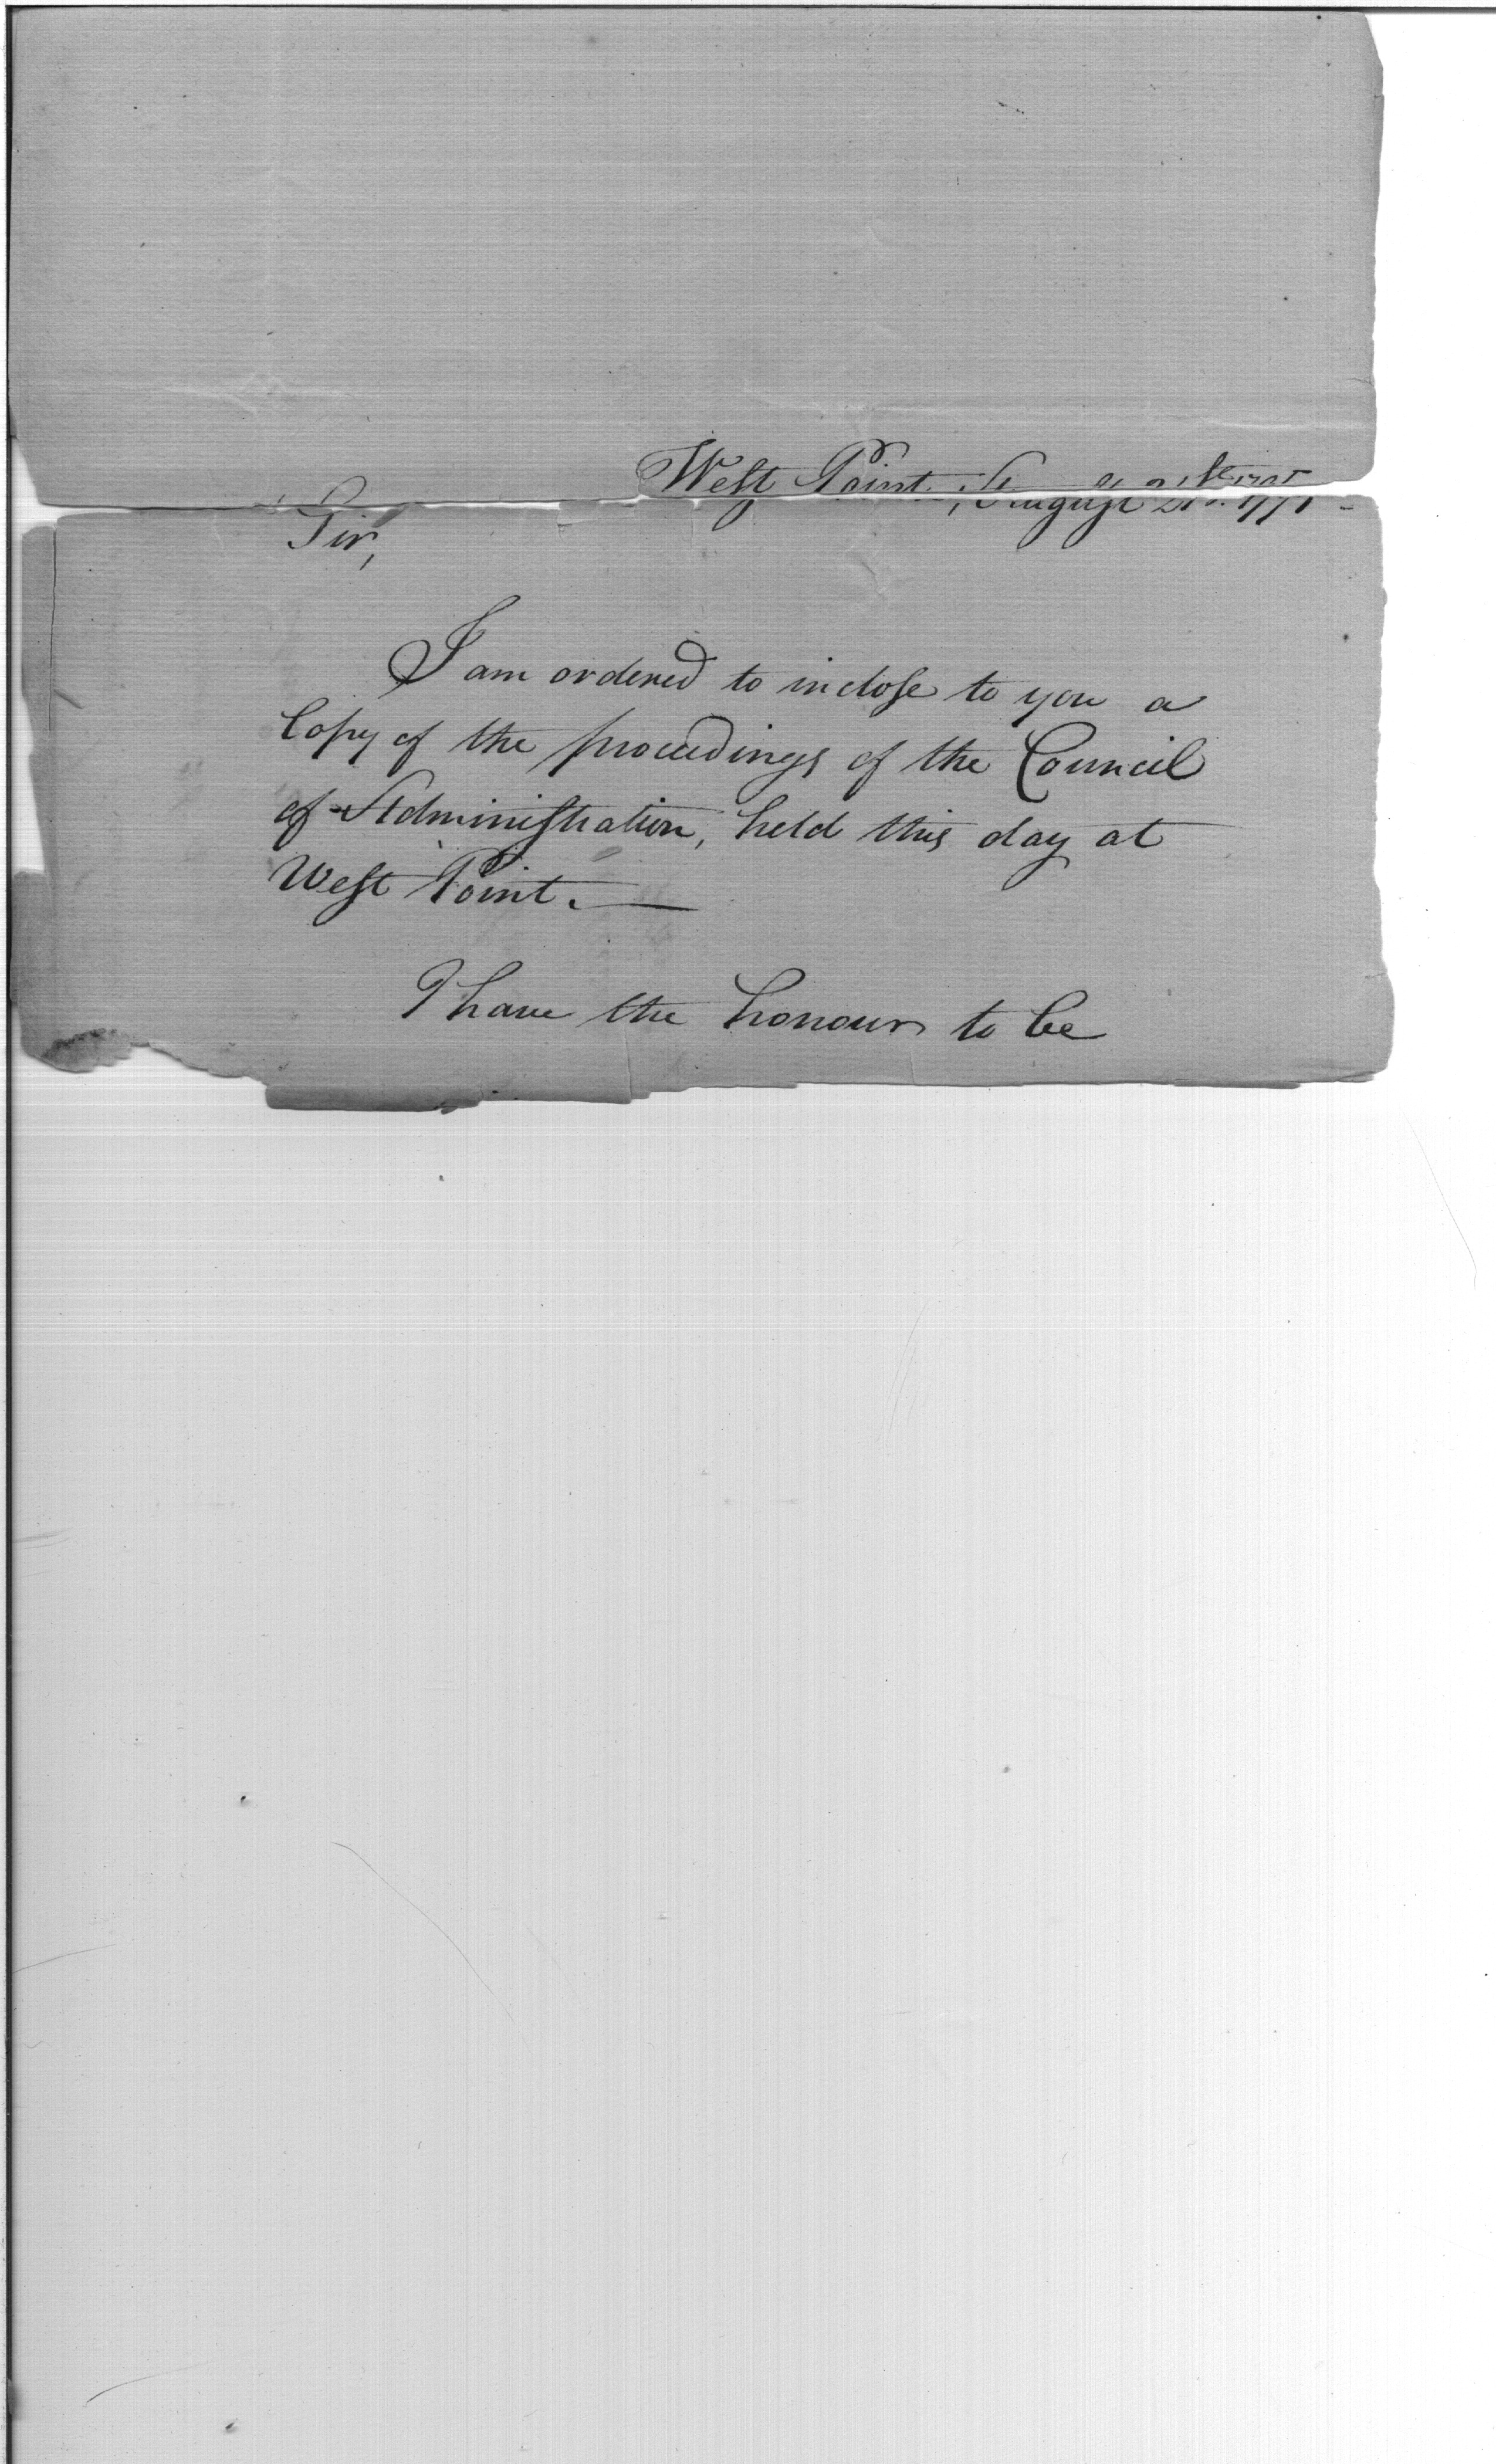 West Point, August 21st. 1795 -
Sir,
I am ordered to inclose to you a
Copy of the proceedings of the Council
of Administration, held this day at
West Point. —
I have the honour to be